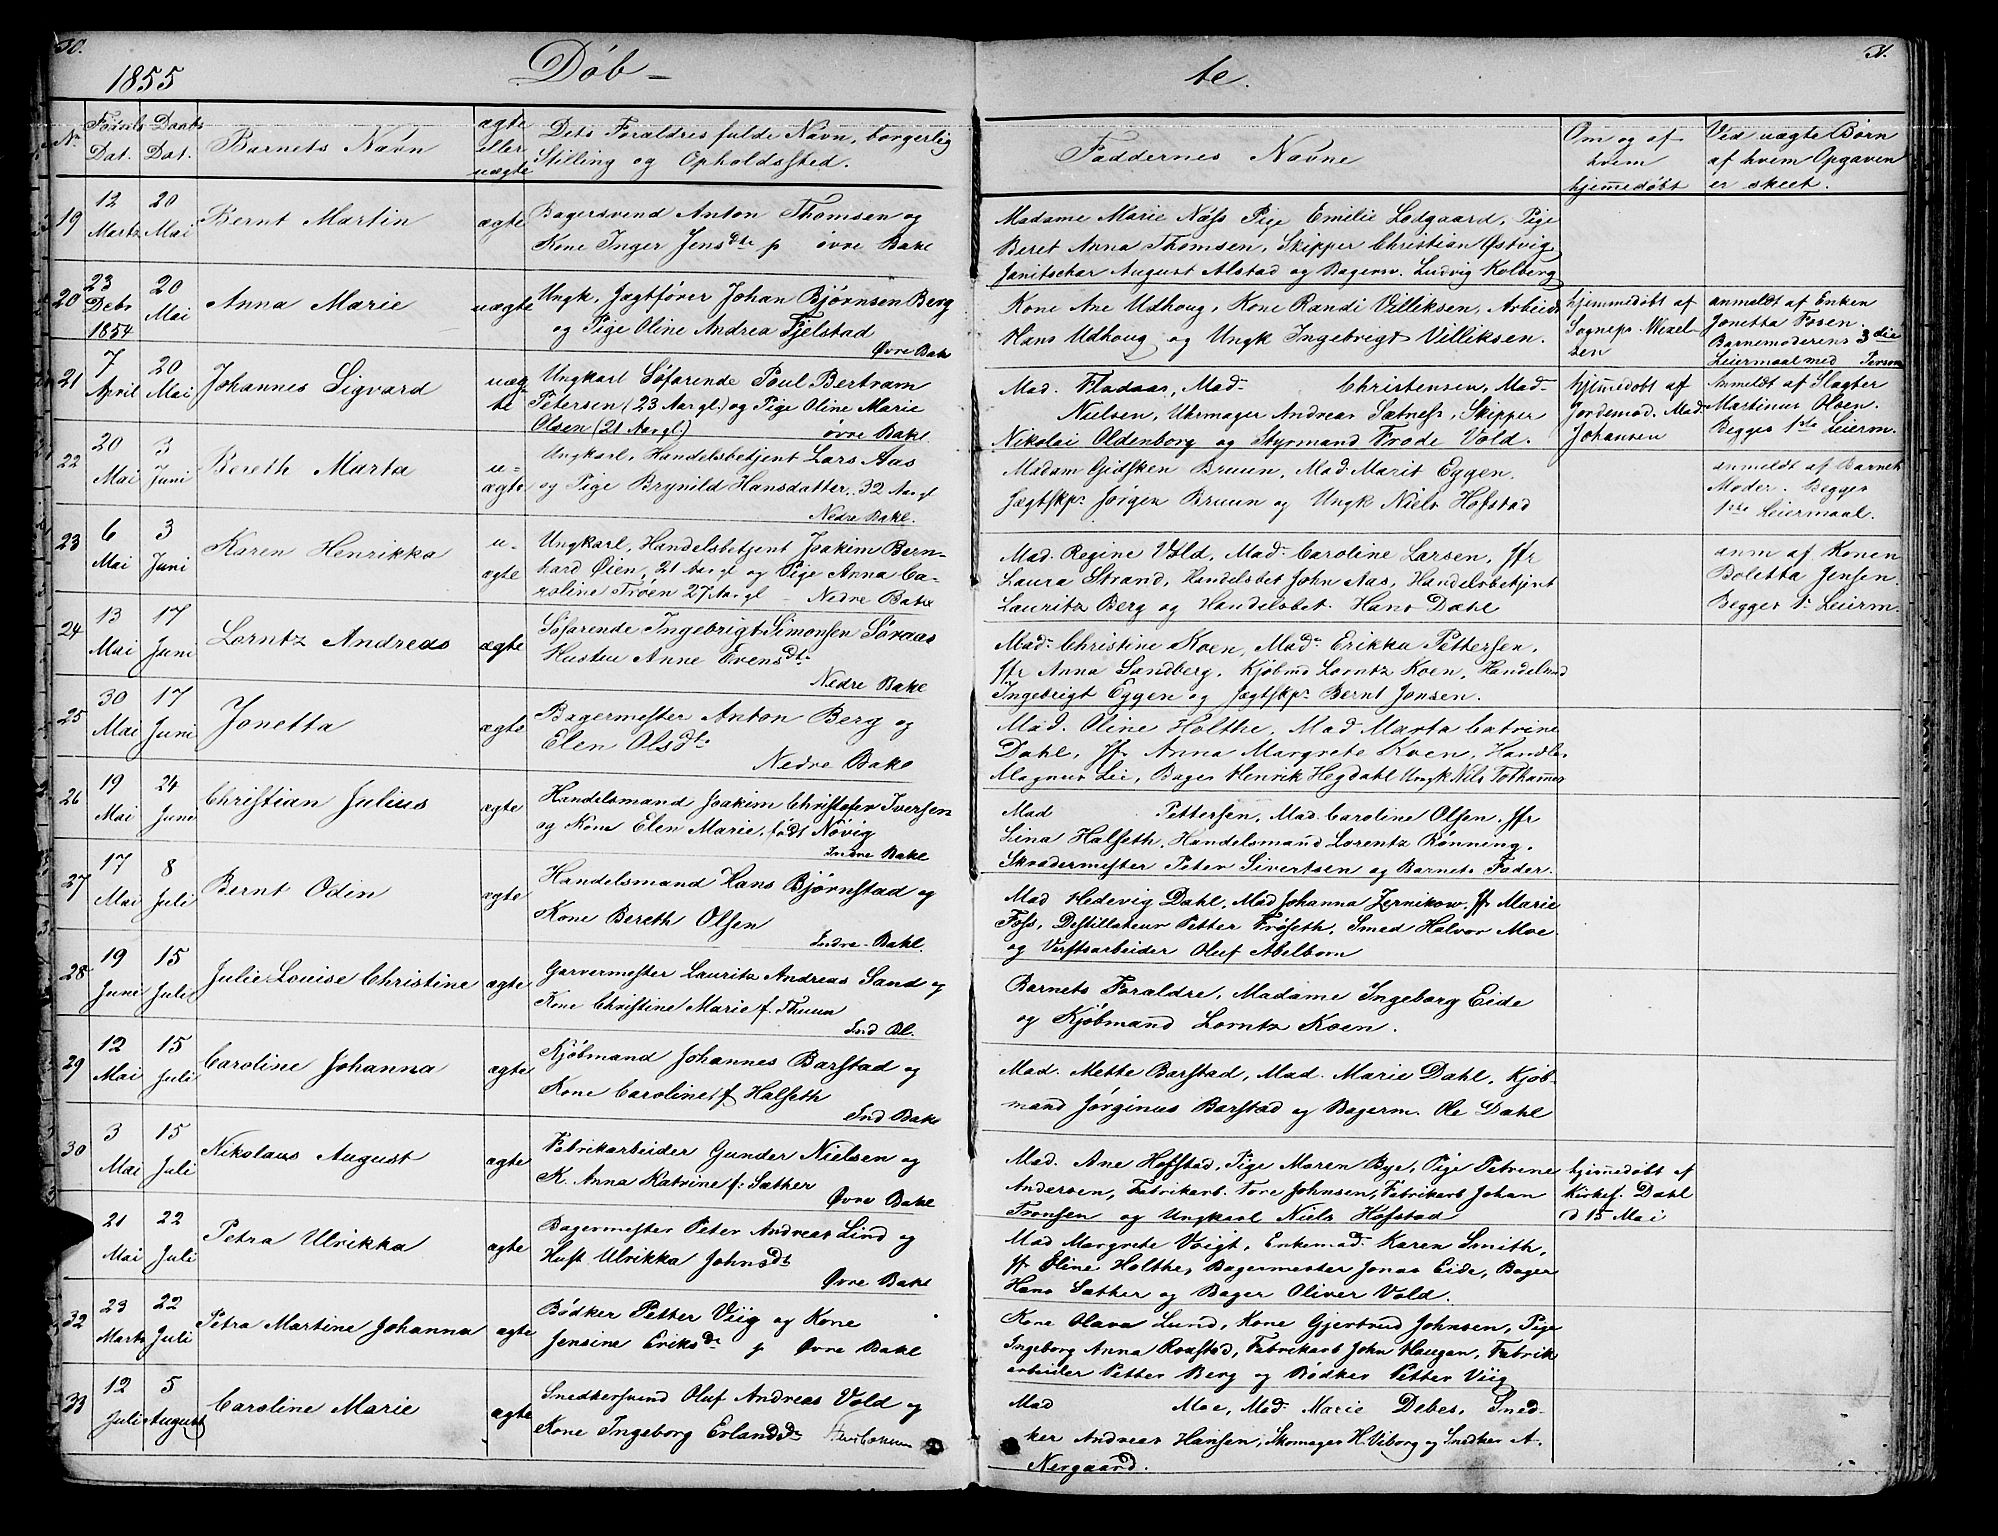 30.
1855
Döb-
te.
31.
No
Födsels Dat.
Daabs Dat.
Barnets Navn
ægte eller uægte
Dets Foraldres fulde Navn, borgerlig
Stilling og Opholdssted.
Faddernes Navne
Om og af
hvem
hjemmedöbt
Ved uægte Börn
af hvem Opgaven
er skeet.
19
12 Marts
20 Mai
Bernt Martin
ægte
Bagersvend Anton Thomsen og
Kone Inger Jensdtr p övre Bakl
Madame Marie Næss Pige Emilie Lodgaard, Pige
Beret Anna Thomsen, Skipper Christian Østvig
Janitschar August Alstad og Bagersv. Ludvig Kolberg
20
23 Debr 1854
20 Mai
Anna Marie
uægte
Ungk. Jægtförer Johan Björnsen Berg
og Pige Oline Andrea Fjelstad
Øvre Bakl
Kone Ane Udhoug, Kone Randi Villiksen, Arbeids
Hans Udhoug og Ungk Ingebrigt Villiksen.
hjemmedöbt af
Sognepr. Wexel-
sen
anmeldt af Enken
Jonetta Fosen.
Barnemoderens 3die
Leiermaal med Person
21
7 April
20 Mai
Johannes Sigvard
uæg-
te
Ungkarl Söfarende Poul Bertram
Petersen (23 Aar gl.) og Pige Oline Marie
Olsen (21 Aar gl.) övre Bakl.
Mad. Fladaas, Mad. Christensen, Mad.
Nielsen, Uhrmager Andreas Sætness, Skipper
Nikolai Oldenborg og Styrmand Frode Vold.
hjemmedöbt af
Jordemod. Mad.
Johansen
Anmeldt af Slagter
Martinus Olsen.
Begges 1ste Leierm.
22
20 Mai
3 Juni
Bereth Marta
u-
ægte
Ungkarl, Handelsbetjent Lars Aas
og Pige Brynild Hansdatter, 32 Aar gl
Nedre Bakl.
Madam Gidsken Bruun, Mad. Marit Eggen.
Jægtskpr Jörgen Bruun og Ungk Niels Hofstad
anmeldt af Barnets
Moder. Begges
1ste Leiermaal.
23
6 Mai
3 Juni
Karen Henrikka
u-
ægte
Ungkarl, Handelsbetjent Joakim Bern-
hard Øien, 21 Aar gl og Pige Anna Ca-
roline Tröen 27 Aar gl - Nedre Bakl
Mad. Regine Vold, Mad. Caroline Larsen, Jfr
Laura Strand, Handelsbet John Aas, Handelsbetjent
Lauritz Berg og Handelsbet. Hans Dahl
anm af Konen
Boletta Jensen.
Begges 1ste Leierm.
24
13 Mai
17 Juni
Lorntz Andreas
ægte
Söfarende Ingebrigt Simonsen Söraas
Hustru Anne Evensdtr
Nedre Bakl
Mad. Christine Koen, Mad. Erikka Pettersen,
Jfr Anna Sandberg, Kjöbmd Lorntz Koen, Handelsmd
Ingebrigt Eggen og Jægtskpr Bernt Jensen.
25
30 Mai
17 Juni
Jonetta
ægte
Bagermester Anton Berg og
Elen Olsdtr
Nedre Bakl
Mad. Oline Holthe, Mad Marta Catrine
Dahl, Jfr Anna Margrete Koen, Handls
Magnus Lei, Bager Henrik Hegdahl Ungk Nils Tothammer
26
19 Mai
24 Juni
Christian Julius
ægte
Handelsmand Joakim Christofer Iversen
og Kone Elen Marie, födt Növig
Indre Bakl
Mad Pettersen, Mad. Caroline Olsen, Jfr
Lina Halseth, Handelsmand Lorentz Rönning,
Skrædermester Peter Sivertsen og Barnets Fader.
27
17 Mai
8 Juli
Bernt Odin
ægte
Handelsmand Hans Björnstad og
Kone Bereth Olsen
Indre-Bakl.
Mad Hedevig Dahl, Mad Johanna Jernikow, Jfr Marie
Foss, Destillateur Petter Fröseth, Smed Halvor Moe
og Verftsarbeider Oluf Abelborn
28
19 Juni
15 Juli
Julie Louise Christine
ægte
Garvermester Lauritz Andreas Sand og
Kone Christine Marie f. Thuen
Ind Bl.
Barnets Foraldre, Madame Ingeborg Eide
og Kjöbmand Lorntz Koen.
29
12 Mai
15 Juli
Caroline Johanna
ægte
Kjöbmand Johannes Barstad og
Kone Caroline f Halseth
Ind Bakl
Mad. Mette Barstad, Mad. Marie Dahl, Kjöb-
mand Jörginus Barstad og Bagerm. Ole Dahl
30
3 Mai
15 Juli
Nikolaus August
ægte
Fabrikarbeider Gunder Nielsen og
K. Anna Katrine f. Sæther
Øvre Bakl
Mad. Ane Hofstad, Pige Maren Bye, Pige Petrine
Andersen, Fabrikarb. Tore Johnsen, Fabrikarb Johan
Tronsen og Ungkarl Niels Hofstad
hjemmedöbt af
Kirkes. Dahl
d 15 Mai
21 Mai
22 Juli
Petra Ulrikka
ægte
Bagermester Peter Andreas Lind og
Hust Ulrikka Johnsdt
Øvre Bakl
Mad Margrete Voigt, Enkemad. Karen Smith,
Jfr Eline Holthe, Bagermester Jonas Eide, Bager
Hans Sæther og Bager Oliver Vold.
32
23 Marts
22 Juli
Petra Martine Johanna
ægte
Bödker Petter Viig og Kone
Jensine Eriksdr p Øvre Bakl
Kone Olava Lund, Kone Gjertrud Johnsen, Pige
Ingeborg Anna Roxstad, Fabrikarb John Haugan, Fabrik
arbeider Petter Berg og Bödker Petter Viig
33
12 Juli
5 August
Caroline Marie
ægte
Snedkersvend Oluf Andreas Vold og
Kone Ingeborg Erlandsdr
Mad Moe, Mad. Marie Debes, Sned-
ker Andreas Hansen, Skomager H. Viborg og Snedker A.
Nergaard.